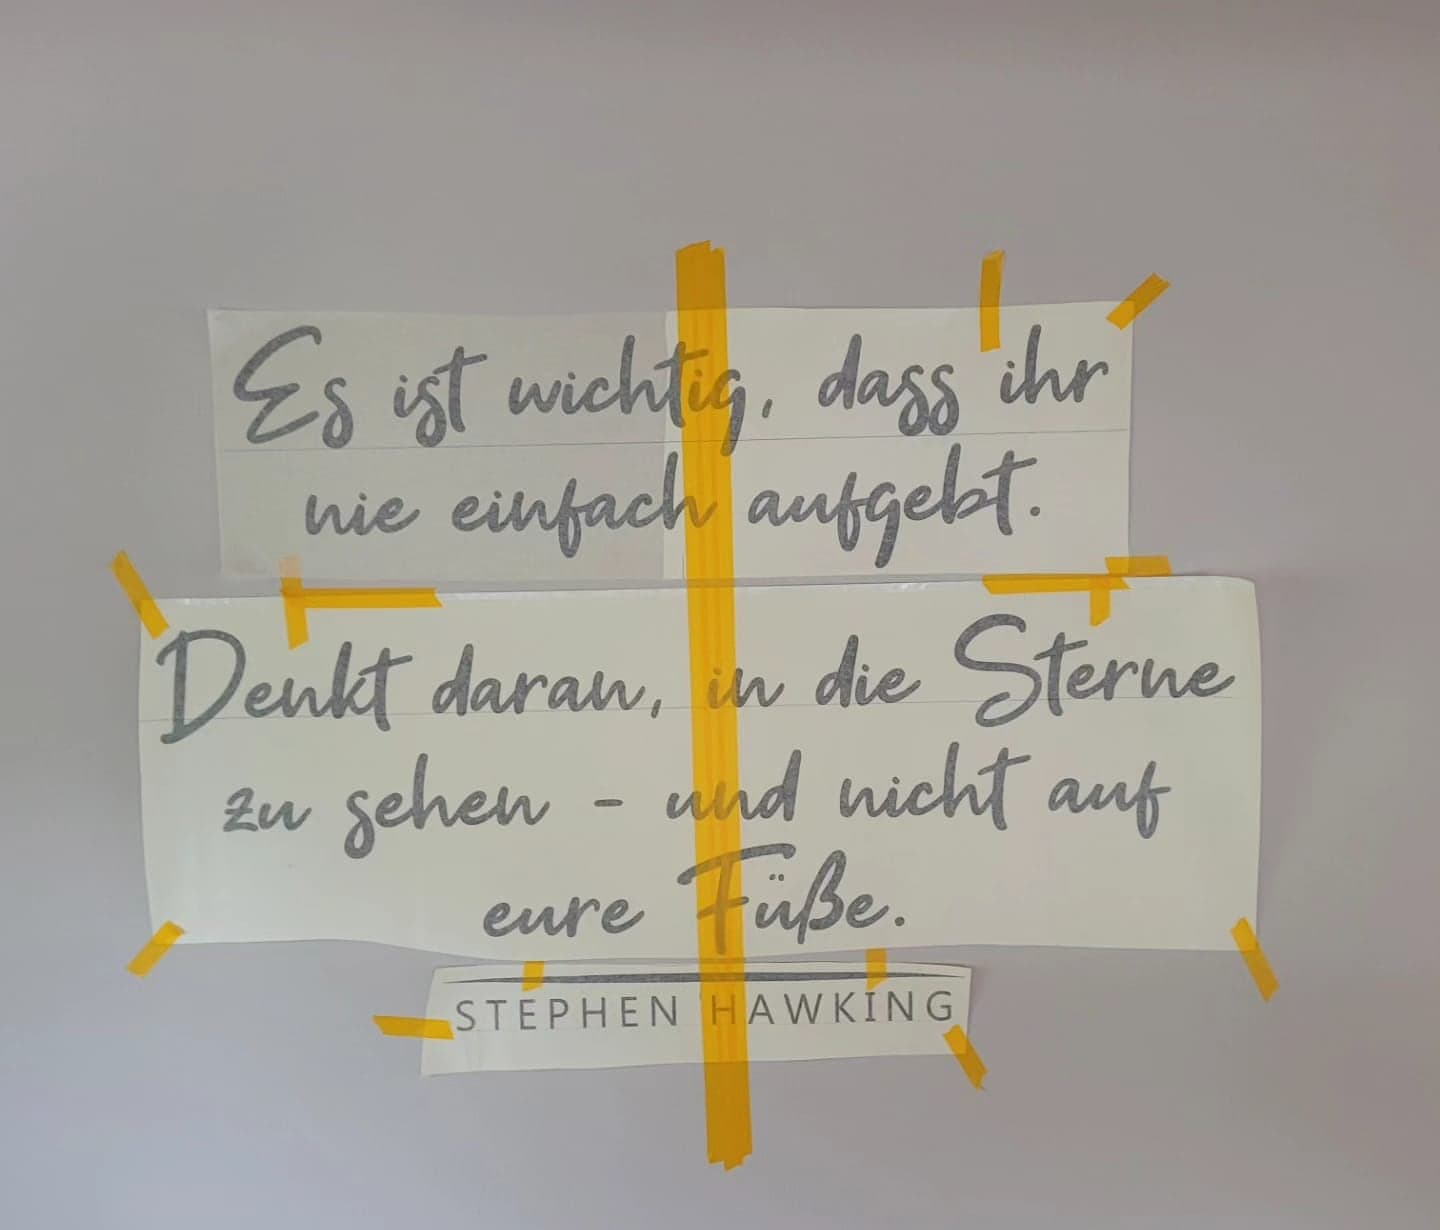 Es ist wichtig, dass ihr
nie einfach aufgebt.
Denkt daran, in die Sterne
zu sehen - und nicht auf
eure Füße.
STEPHEN HAWKING